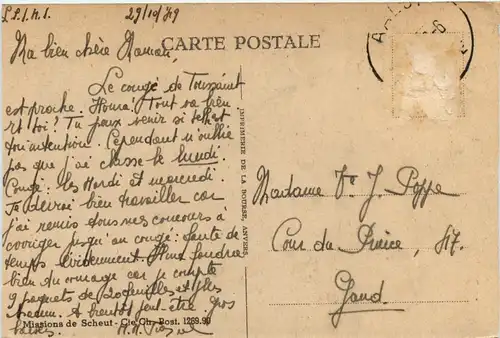 29/10/49
Ma bien chère Maman,
CARTE POSTALE
Le congé de Toussaint
est proche. Tout va bien
et toi? Tu peux venir si telle est
ton intention. Cependant n'oublie
pas que j'ai classe le lundi.
Congé: les Mardi et mercredi.
Je devrai bien travailler car
j'ai remis tous mes concours à
corriger jusqu'au congé: faute de
temps évidemment. Il me faudra
bien du courage car je compte
9 paquets de 20 feuilles et plus
chacun. A bientôt peut-être. Gros
baisers.
IMPRIMERIE DE LA BOURSE, ANVERS.
Madame Ve J. Poppe
Cour du Prince, 47.
Gand.
Missions de Scheut - Cte Ch. Post. 1269.90